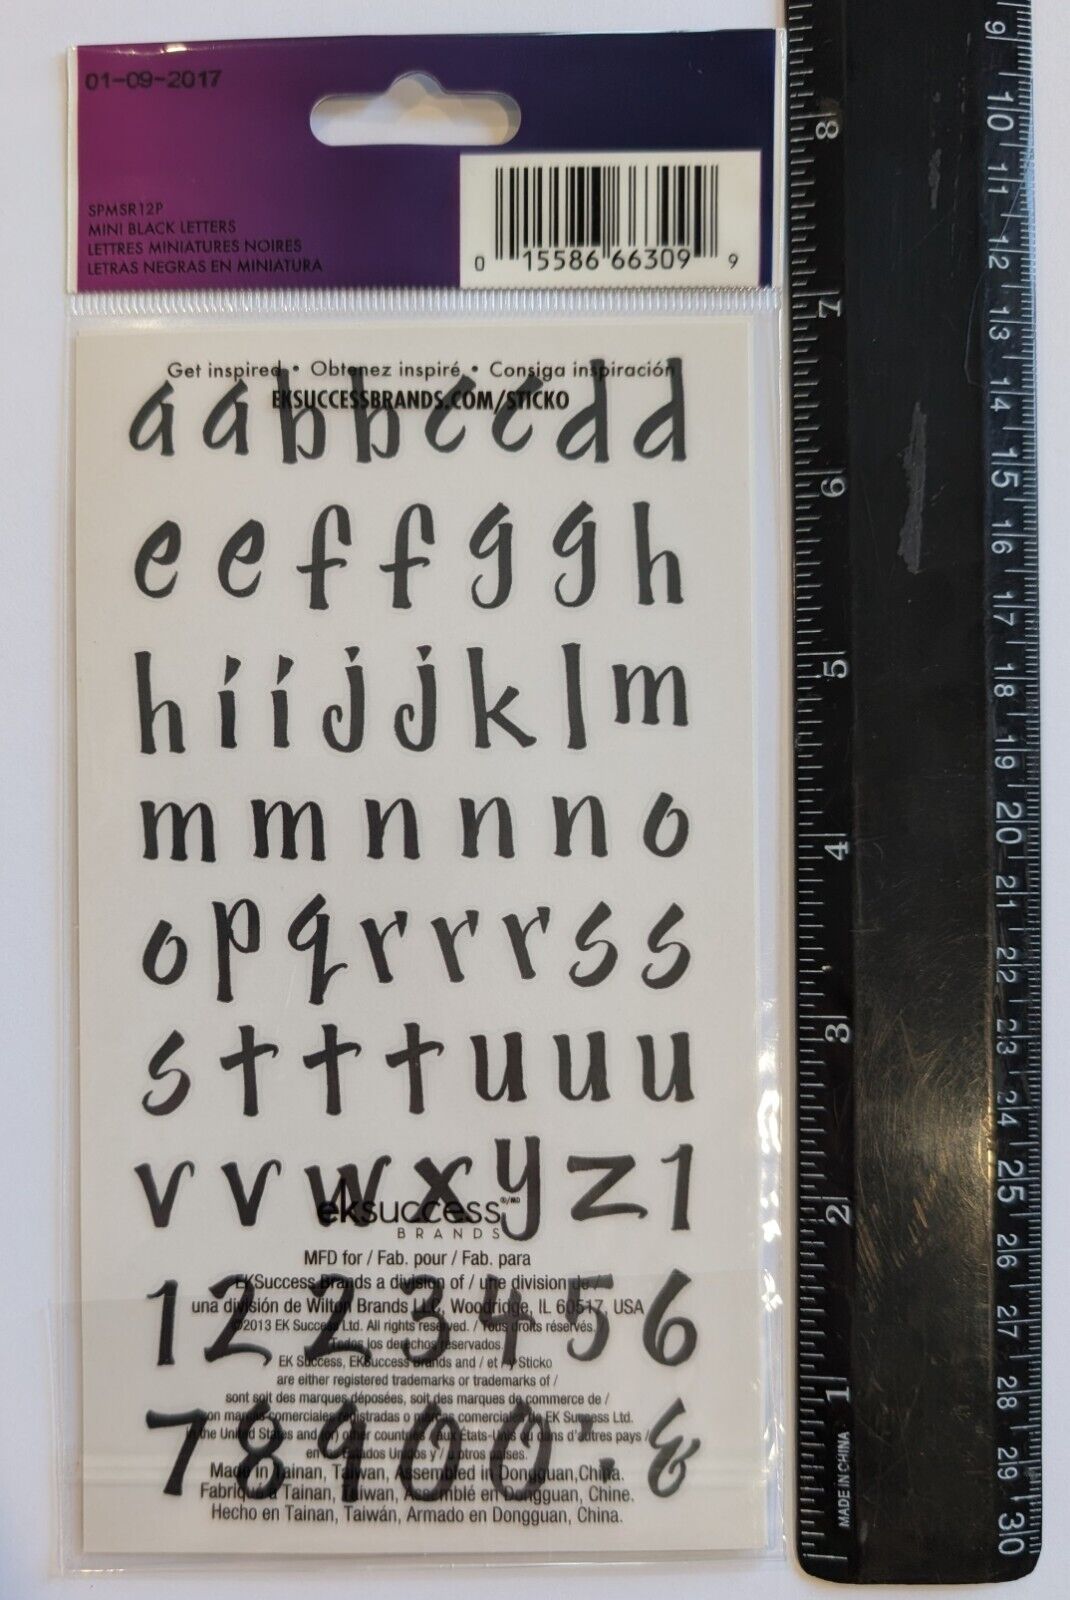 01-09-2017
SPMSR12P
MINI BLACK LETTERS
LETTRES MINIATURES NOIRES
LETRAS NEGRAS EN MINIATURA
0 15586 66309 9
Get inspired • Obtenez inspiré • Consiga inspiración
EKSUCCESSBRANDS.COM/STICKO
a a b b c c d d
e e f f g g h
h i i j j k l m
m m n n n o
o p q r r r s s
s t t t u u u
v v w x y z 1
eksuccess®/MD
BRANDS
MFD for / Fab. pour / Fab. para
EKSuccess Brands a division of / une division de /
una división de Wilton Brands LLC, Woodridge, IL 60517, USA
©2013 EK Success Ltd. All rights reserved. / Tous droits réservés.
Todos los derechos reservados.
EK Success, EKSuccess Brands and / et / y Sticko
are either registered trademarks or trademarks of /
sont soit des marques déposées, soit des marques de commerce de /
son marcas comerciales registradas o marcas comerciales de EK Success Ltd.
in the United States and (or) other countries / aux États-Unis ou dans d'autres pays /
en los Estados Unidos y / u otros países.
Made in Tainan, Taiwan, Assembled in Dongguan, China.
Fabriqué à Tainan, Taiwan, Assemblé en Dongguan, Chine.
Hecho en Tainan, Taiwán, Armado en Dongguan, China.
1 2 2 3 4 5 6
7 8 9 0 0 . &
8 7 6 5 4 3 2 1
MADE IN CHINA
9 10 11 12 13 14 15 16 17 18 19 20 21 22 23 24 25 26 27 28 29 30